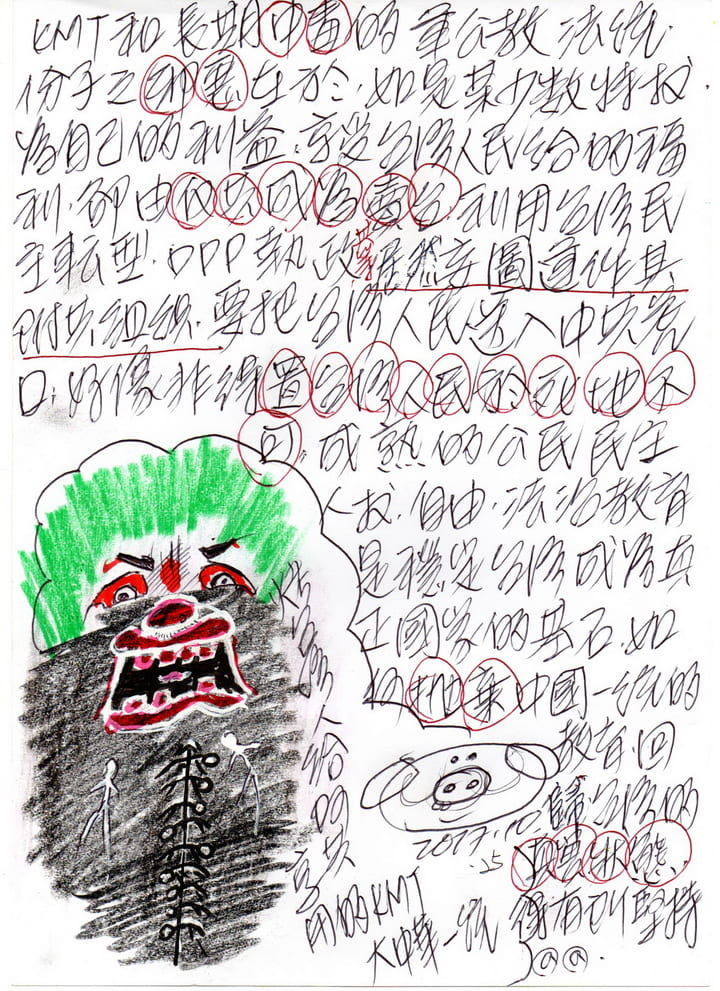 KMT和長期中毒的軍公教法統
份子之邪惡在於,如是某少數特权
為自己的利益.享受台湾人民給的福
利.卻由反共成為賣台.利用台湾民
主転型.DPP執政
附共組織.要把台湾人民送入中共
口;好像非得置台湾人民於死地不
可.成熟的公民民主
人权.自由.法治教育
是穩定台湾成為真
正國家的基石.如
何拋棄中國一統的
教育.回
歸台湾的
2017.10.25
得有到堅持
@@.
把台湾人給
享
用的KMT
大中華一統